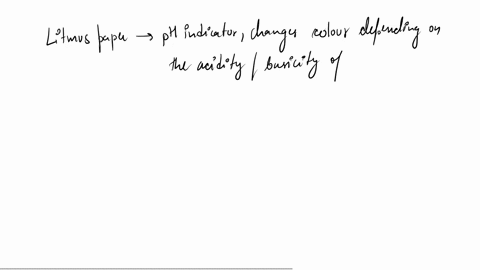 Litmus paper → pH indicator, changes colour depending on
the acidity / basicity of